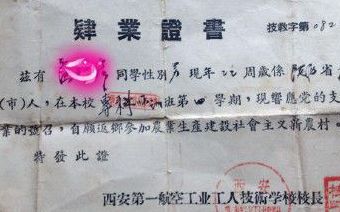 肄業證書
技教字第082
兹有 同學性别男現年22周歲係 省
(市)人,在本校專科 班第四學期,現響應党的支
業的號召,自願返鄉参加農業生産建設社會主义新農村。
特發此證
西安第一航空工业工人技術学校校長
西安